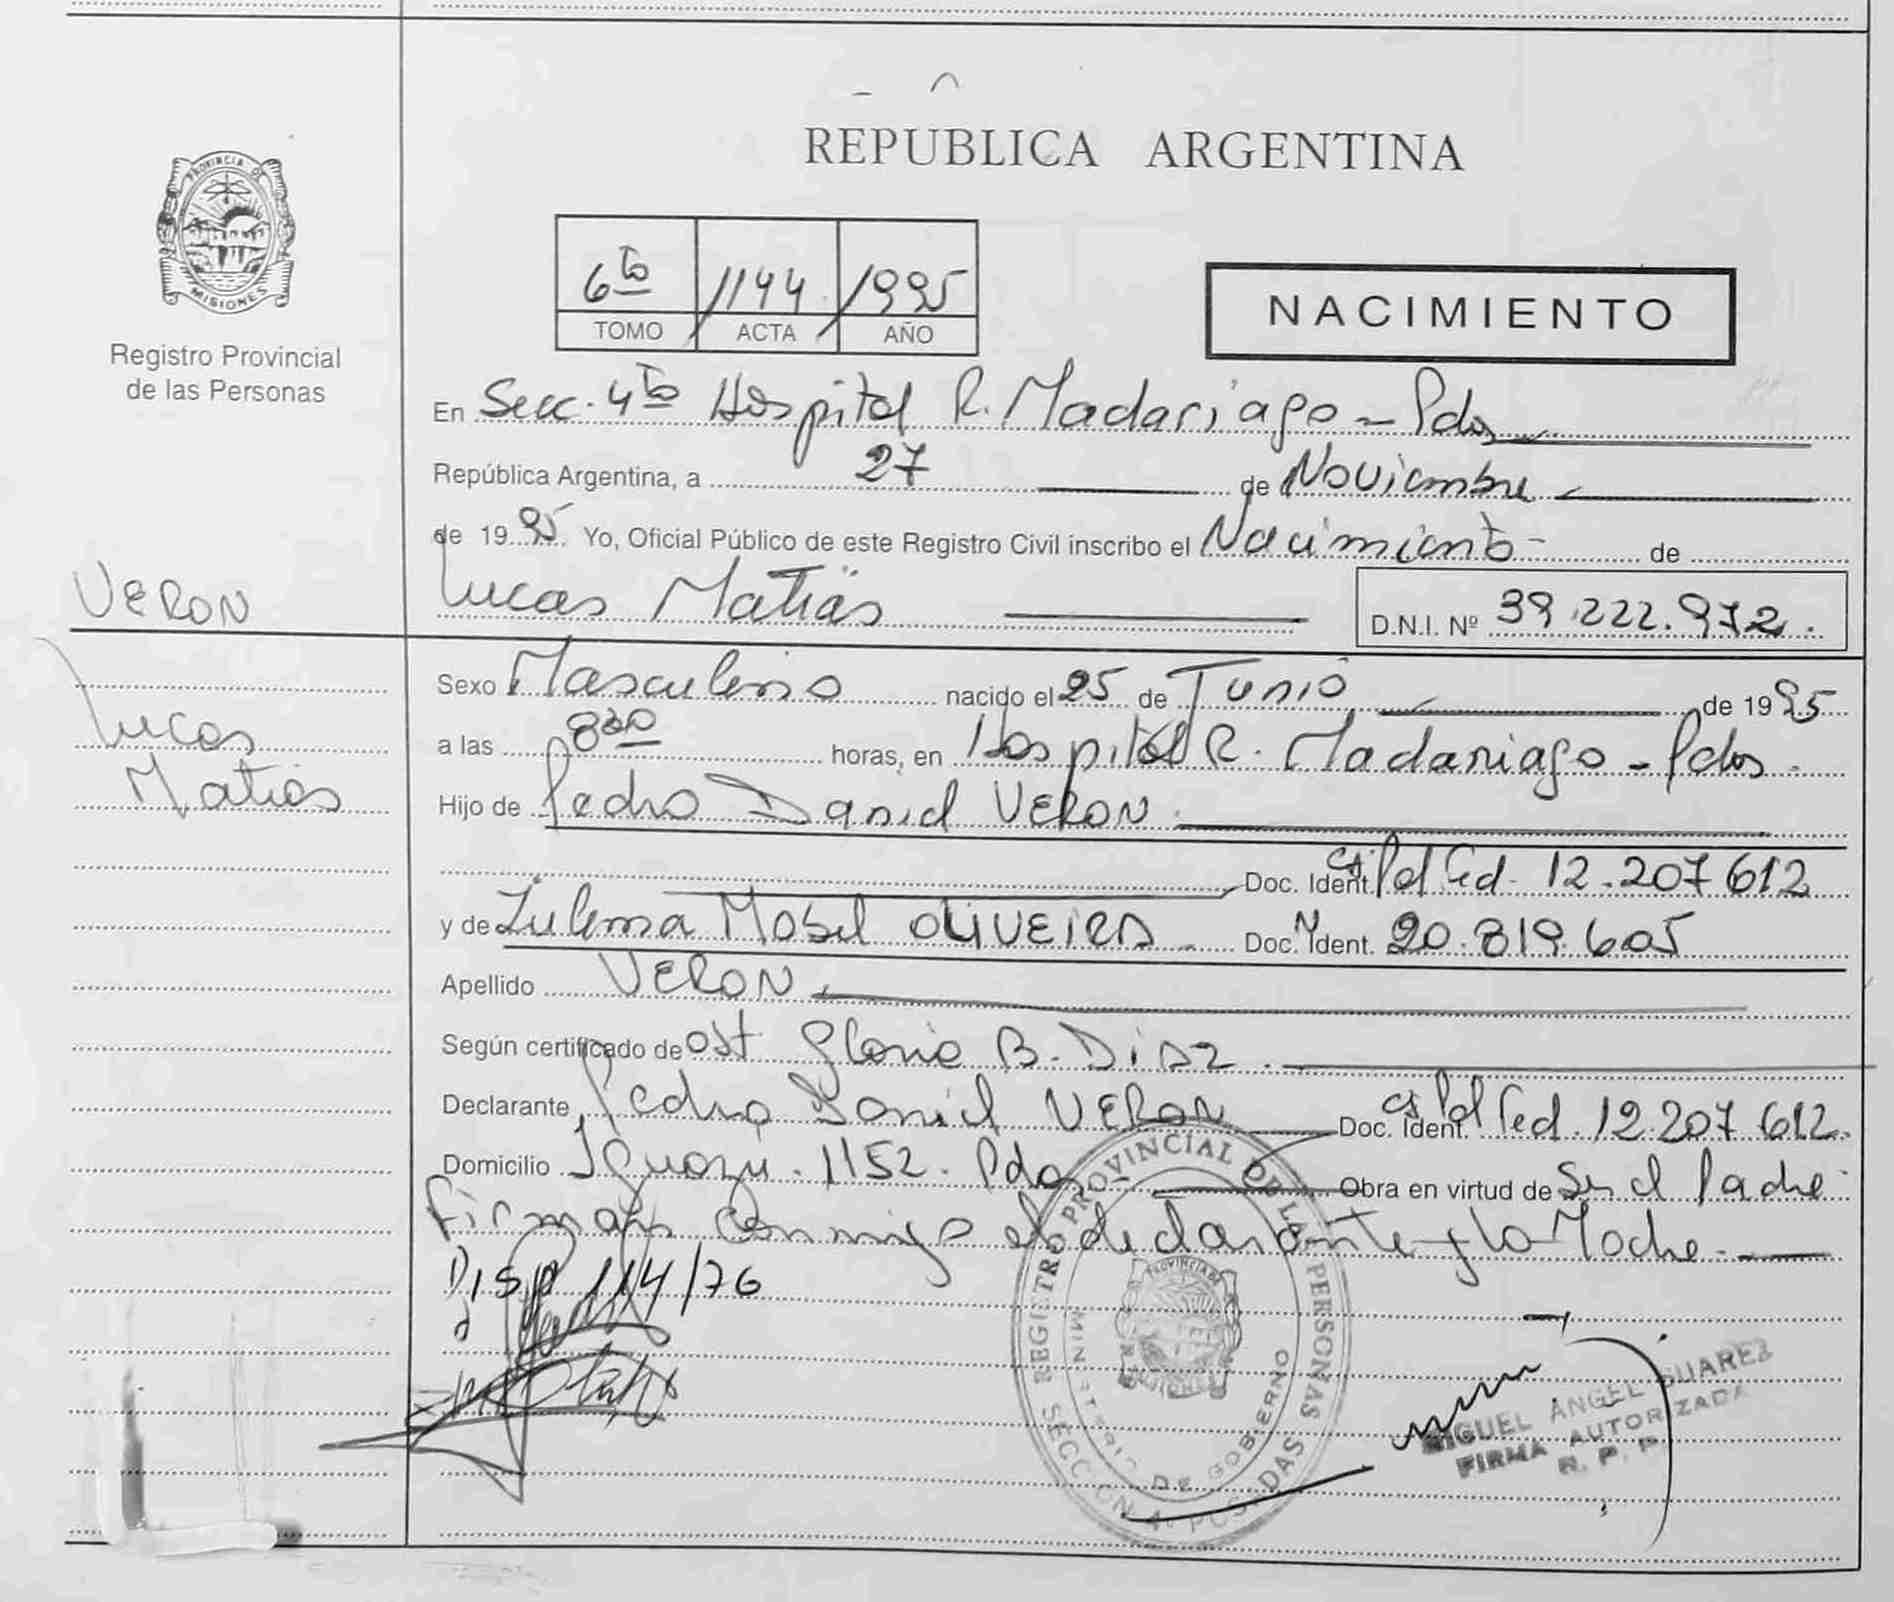 REPUBLICA ARGENTINA
PROVINCIA DE
MISIONES
Registro Provincial
de las Personas
6to 1144 1995
TOMO ACTA AÑO
NACIMIENTO
En Secc. 4ta Hospital R. Madariaga - Pdas
República Argentina, a 27 de Noviembre
de 1995 Yo, Oficial Público de este Registro Civil inscribo el Nacimiento de
VERON
Lucas Matias
D.N.I. Nº 39.222.972.
Sexo Masculino nacido el 25 de Junio de 1995
Lucas
a las 830 horas, en Hospital R. Madariaga - Pdas.
Matias
Hijo de Pedro Daniel VERON
Doc. Ident. Pol Fed. 12.207612
y de Zulema Mabel OLIVEIRA Doc. Ident. 20.819.605
Apellido VERON
Según certificado de Ost Gloria B. Diaz
Declarante Pedro Daniel VERON Doc. Ident. Pol Fed. 12207612.
Domicilio Iguazu. 1152. Pdas Obra en virtud de Ser el Padre
Firman conmigo el declarante y la Madre.
Disp 114/76
REGISTRO PROVINCIAL DE LAS PERSONAS
MINISTERIO DE GOBIERNO
SECCION 4a POSADAS
MIGUEL ANGEL SUAREZ
FIRMA AUTORIZADA
R. P. P.